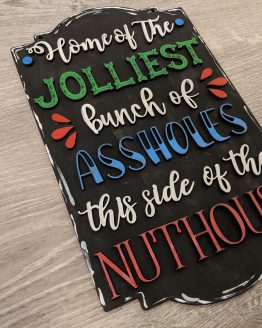 Home of the
JOLLIEST
bunch of
ASSHOLES
this side of the
NUTHOUS